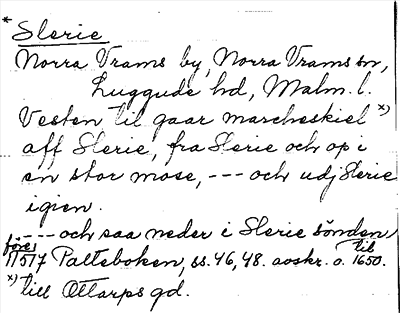 * Slerie
Norra Vrams by, Norra Vrams sn,
Luggude hd, Malm. l.
Vesten til gaar marcheskiel x)
aff Slerie, fra Slerie och op i
en stor mose, --- och udj Slerie
igien.
--- och saa neder i Slerie sönden
före 1/5 17 Palteboken, ss. 46, 48. avskr. o. 1650. till
x) till Ottarps gd.